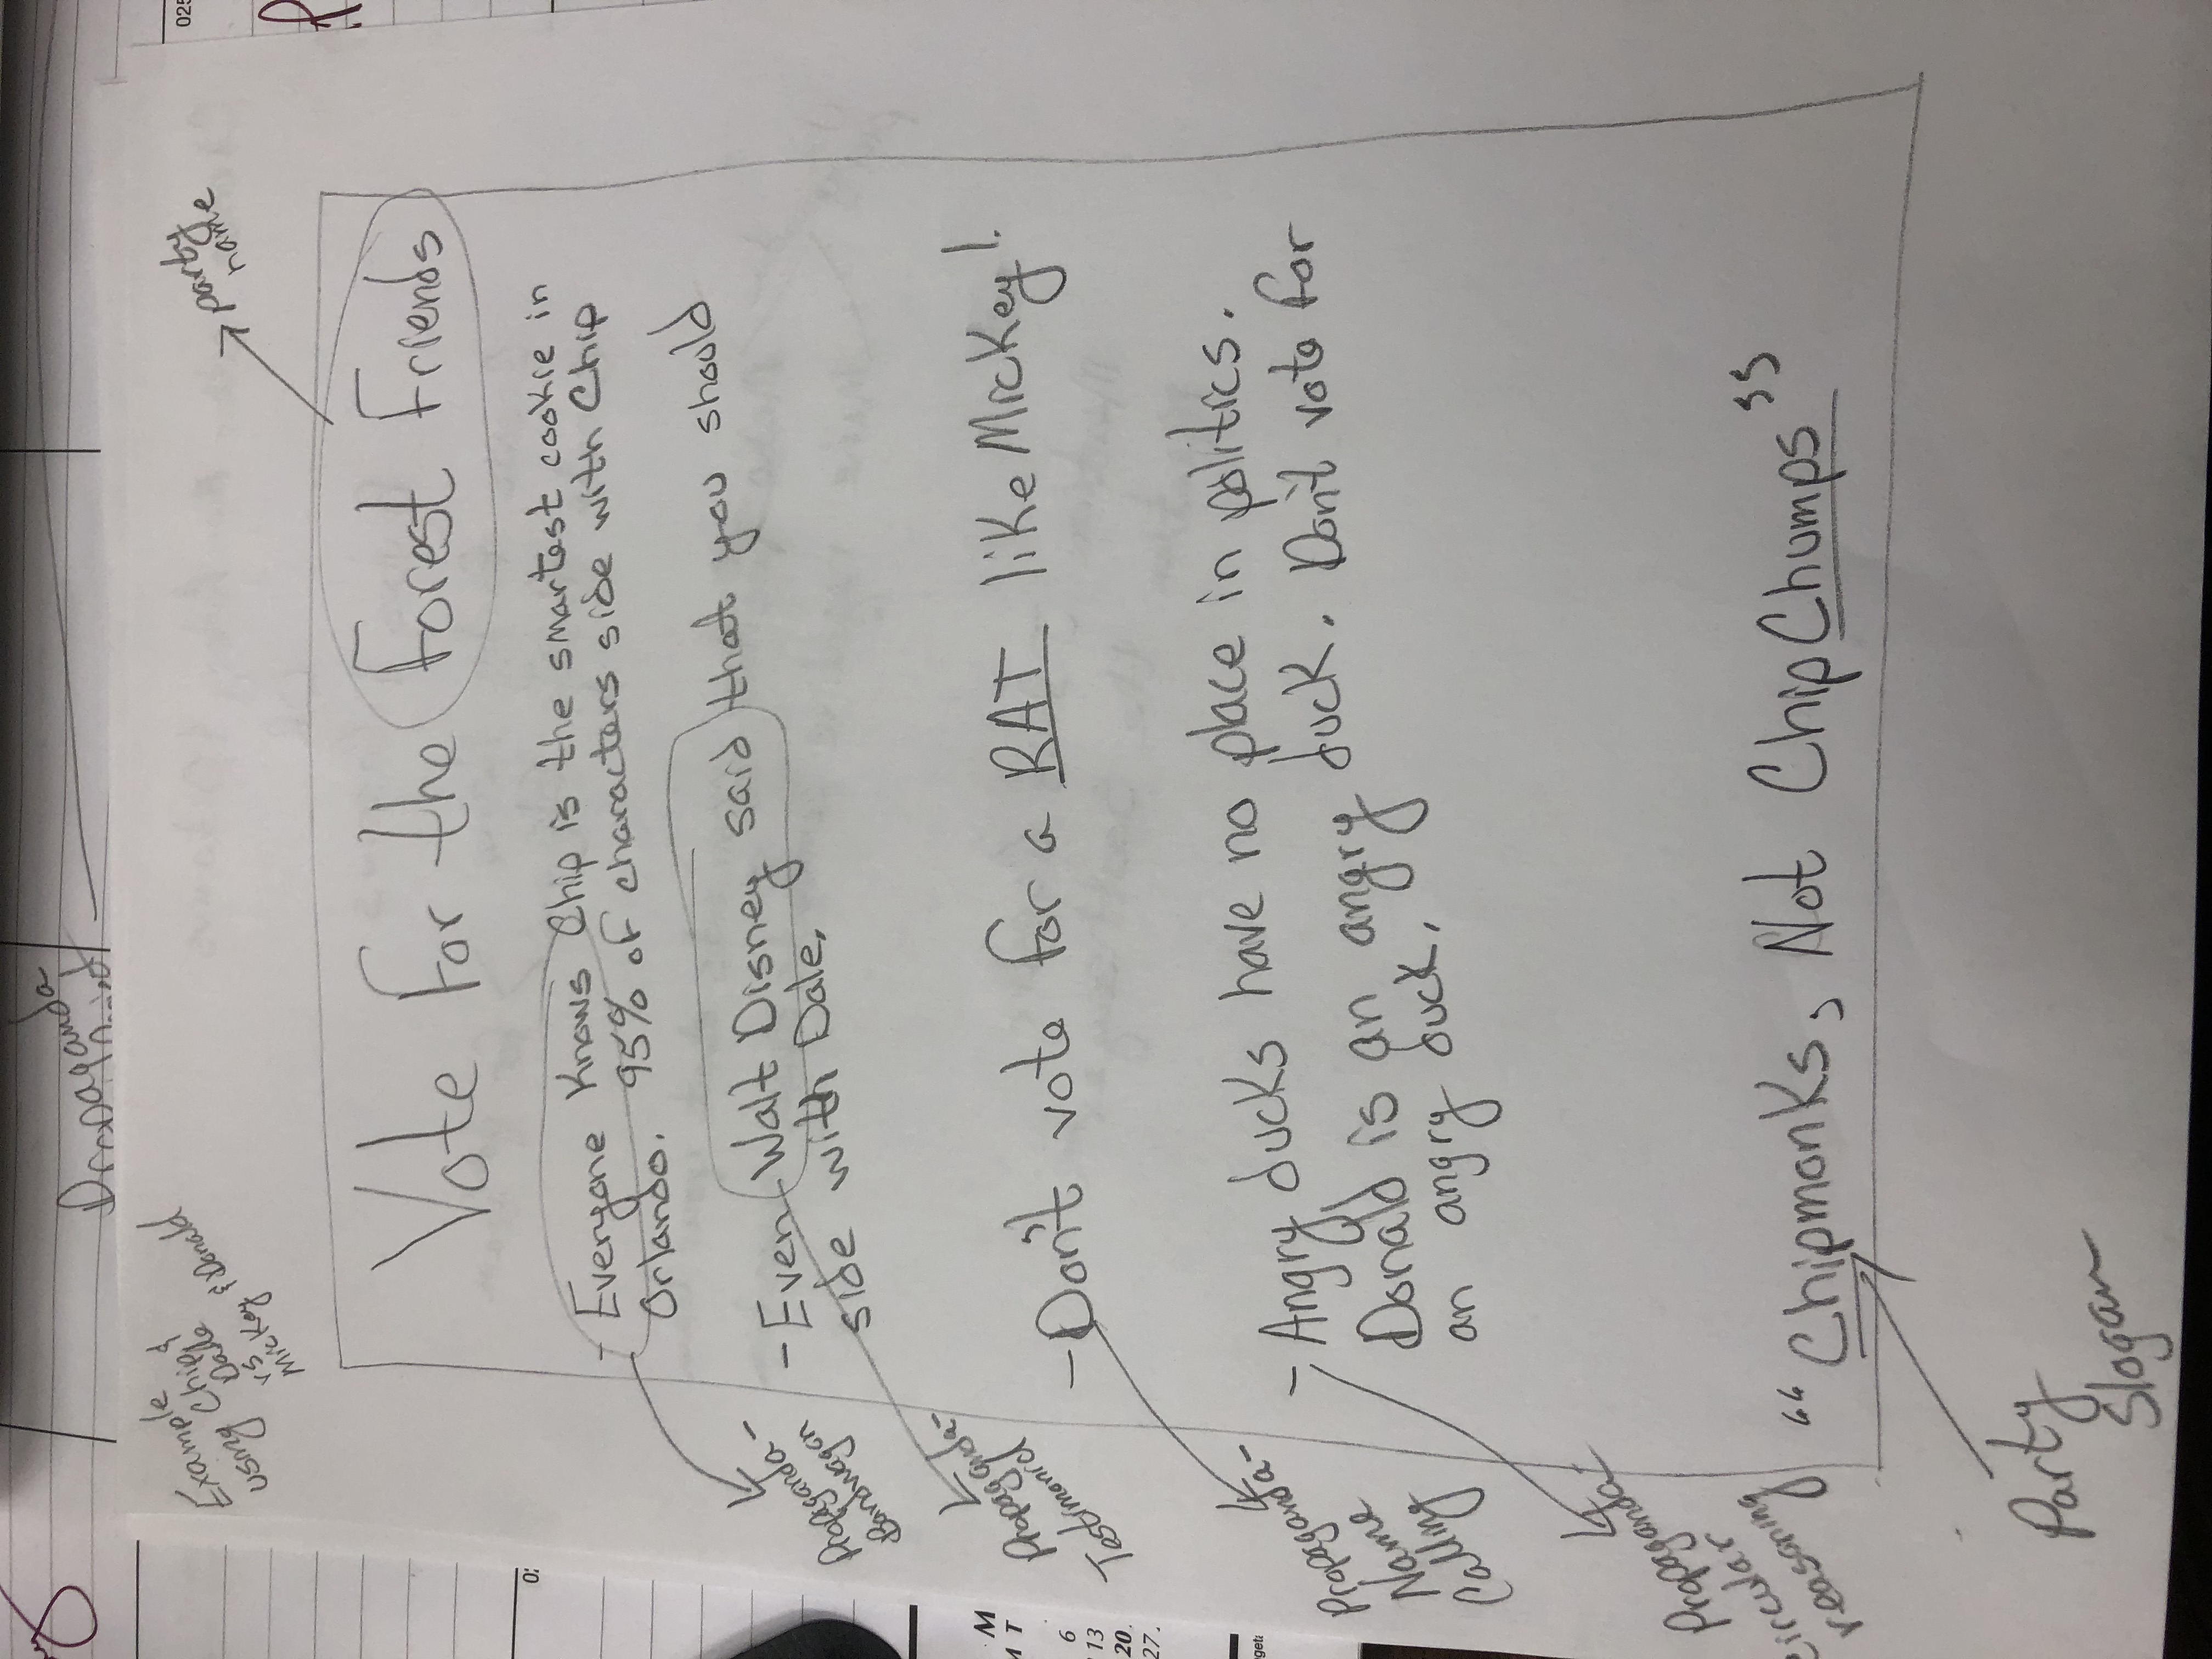 Propaganda
Example
using Chip &
Dale
vs
Mickey & Donald
party
name
Vote for the Forest Friends
- Everyone knows Chip is the smartest cookie in
Orlando. 95% of characters side with Chip
- Even Walt Disney said that you should
side with Dale.
- Don't vote for a RAT like Mickey!
- Angry ducks have no place in politics.
Donald is an angry duck. Don't vote for
an angry duck.
"Chipmonks, Not ChipChumps"
Propaganda-
Bandwagon
Propaganda-
Testimonial
Propaganda-
Name
Calling
Propaganda-
circular
reasoning
Party
Slogan
025
M
M T
6
13
20.
27.